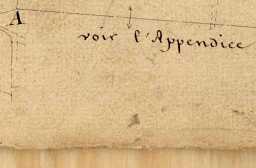 A
voir l'Appendice